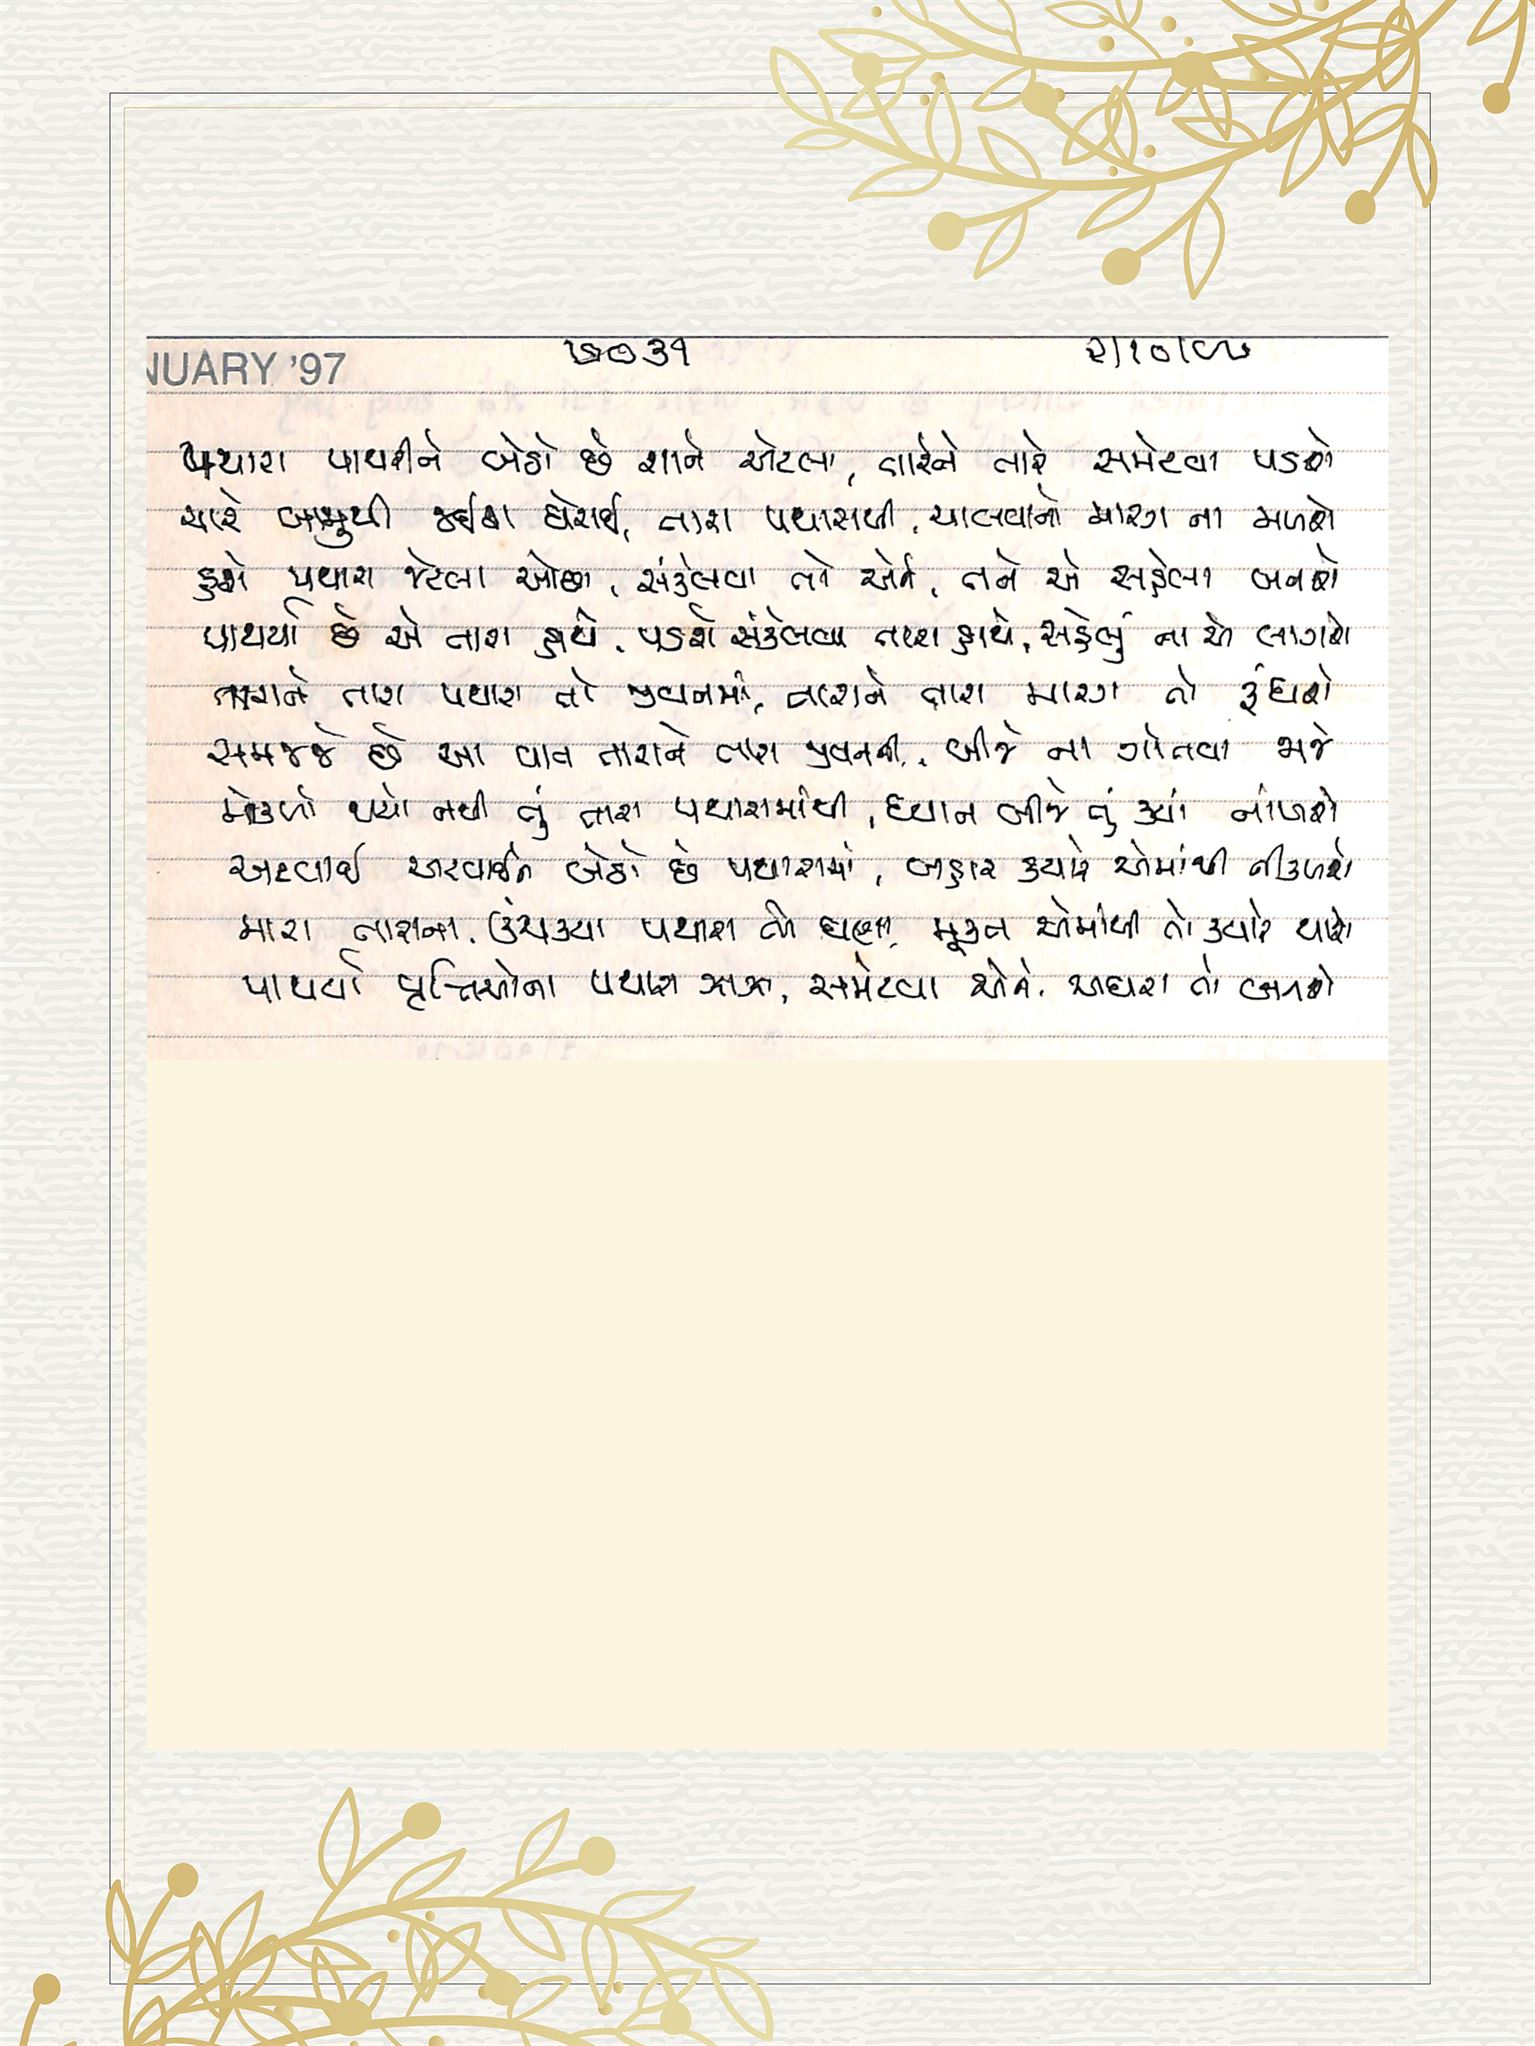 NUARY '97 ૭૦૩૧ ૨/૧૦/૯૭
પથારા પાથરીને બેઠો છે શાને એટલા, તારેને તારે સમેટવા પડશે
ચારે બાજુથી જઈશ ઘેરાઈ, તારા પથારાથી, ચાલવાનો મારગ ના મળશે
હશે પથારા જેટલા ઓછા, સંકેલવા તો એને, તને એ સહેલા બનશે
પાથર્યા છે એ તારા હાથે, પડશે સંકેલવા તારા હાથે, સહેલું ના એ લાગશે
તારાને તારા પથારા તો જીવનમાં, તારાને તારા મારગ તો રૂંધશે
સમજજે છે આ વાત તારાને તારા જીવનની, બીજે ના ગોતવા જાજે
મોકળો થયો નથી તું તારા પથારામાંથી, ધ્યાન બીજે તું ક્યાં નાંખશે
અટવાઈ અટવાઈને બેઠો છે પથારામાં, બહાર ક્યારે એમાંથી નીકળશે
મારા તારાના, ઉંચક્યા પથારા તો ઘણા, મૂક્ત એમાંથી તો ક્યારે થાશે
પાથર્યા વૃત્તિઓના પથારા ઝાઝા, સમેટવા એને, અઘરા તો બનશે